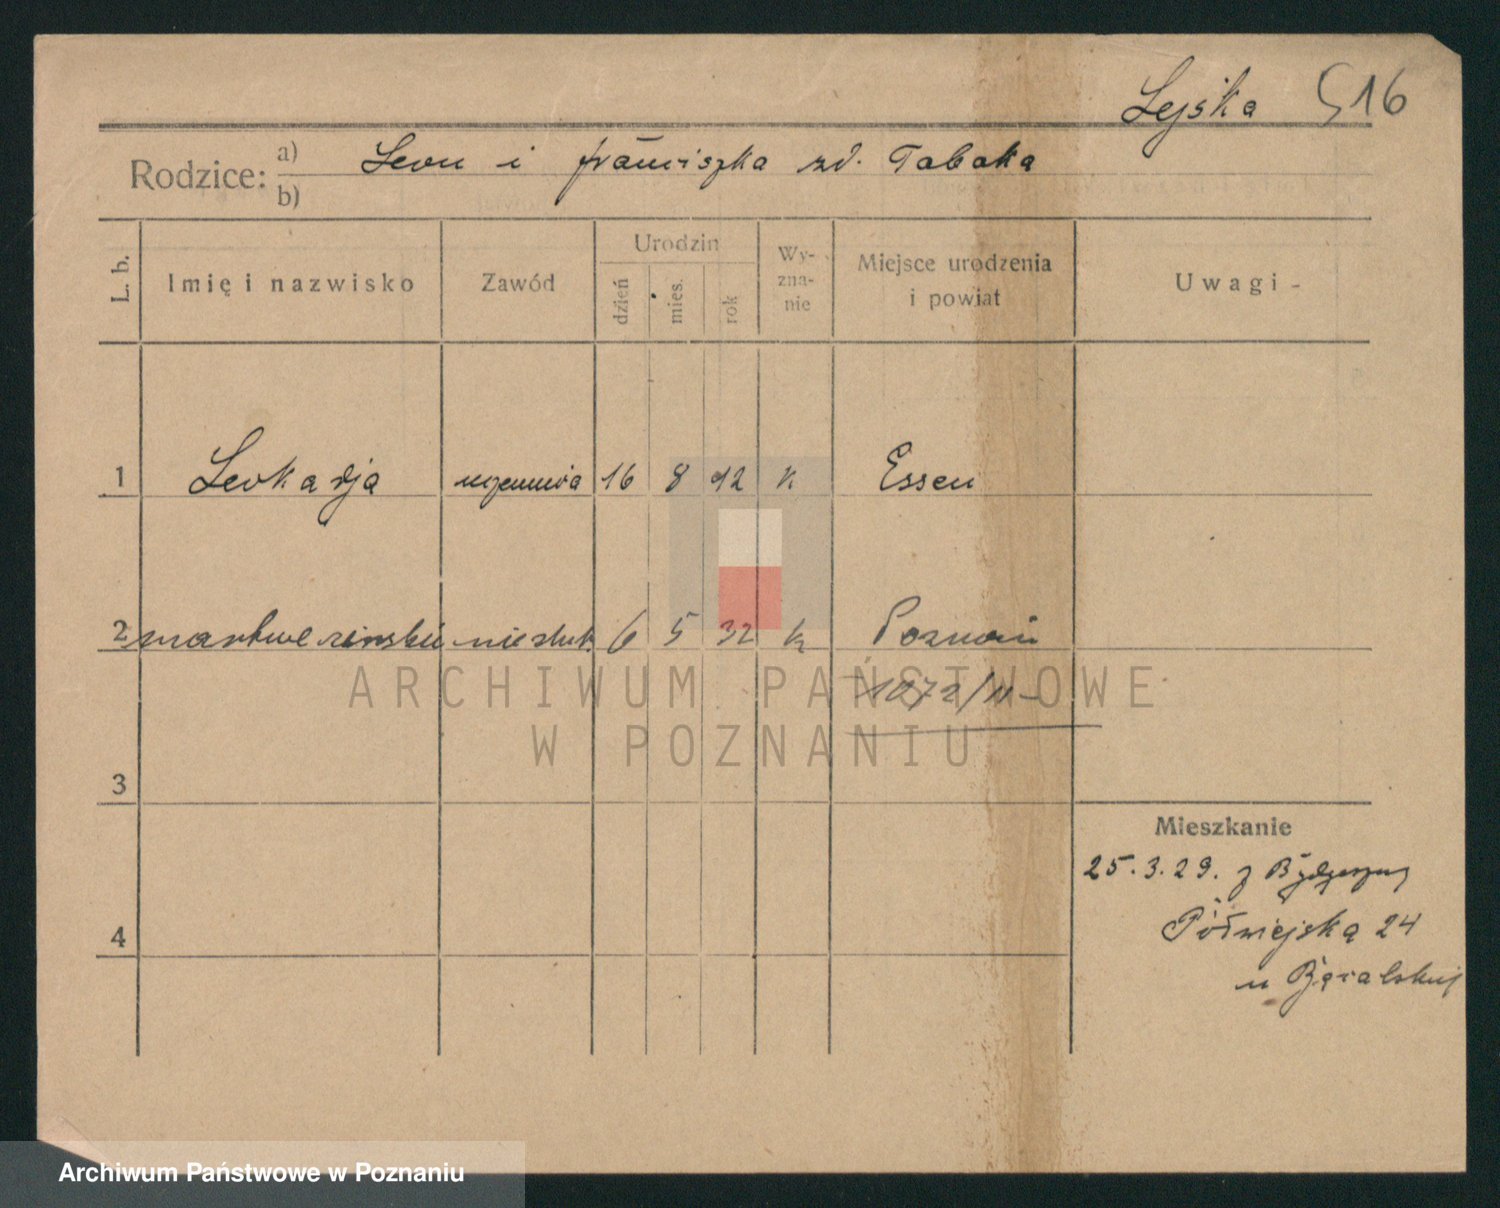 Lejska 516
Rodzice: a) Leon i Franciszka zd. Tabaka
b)
L. b.
Imię i nazwisko
Zawód
Urodzin
dzień
mies.
rok
Wy-
zna-
nie
Miejsce urodzenia
i powiat
Uwagi
1 Leokadja uczennica 16 8 12 k Essen
2 martwe nieślub. 6 5 32 k Poznań
1072/II
ARCHIWUM PAŃSTWOWE
W POZNANIU
3
Mieszkanie
25.3.29. z Bydgoszczy
4
Półwiejska 24
u Góralskiej
Archiwum Państwowe w Poznaniu